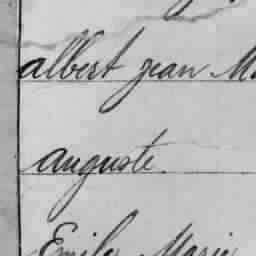 albert jean M
auguste.
Emile Marie